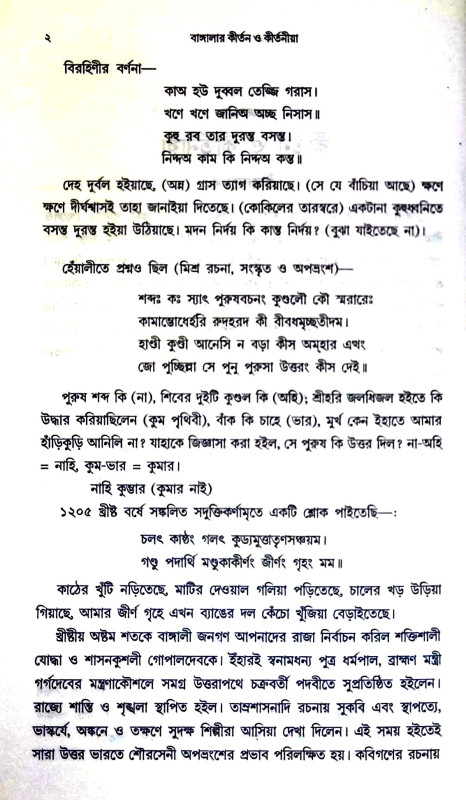 ২ বাঙ্গালার কীর্তন ও কীর্তনীয়া
বিরহিণীর বর্ণনা—
কাঅ হউ দুব্বল তেজ্জি গরাস।
খণে খণে জানিঅ অচ্ছ নিসাস॥
কুহু রব তার দুরন্ত বসন্ত।
নিদ্দঅ কাম কি নিদ্দঅ কন্ত॥
দেহ দুর্বল হইয়াছে, (অন্ন) গ্রাস ত্যাগ করিয়াছে। (সে যে বাঁচিয়া আছে) ক্ষণে
ক্ষণে দীর্ঘশ্বাসই তাহা জানাইয়া দিতেছে। (কোকিলের তারস্বরে) একটানা কুহুধ্বনিতে
বসন্ত দুরন্ত হইয়া উঠিয়াছে। মদন নির্দয় কি কান্ত নির্দয়? (বুঝা যাইতেছে না)।
হেঁয়ালীতে প্রশ্নও ছিল (মিশ্র রচনা, সংস্কৃত ও অপভ্রংশ)—
শব্দঃ কঃ স্যাৎ পুরুষবচনং কুণ্ডলৌ কৌ স্মরারেঃ
কামাম্ভোধের্হরি রুদ্হরদ কী বীবধমৃচ্ছতীদম।
হাণ্ডী কুণ্ডী আনেসি ন বড়া কীস অম্হার এথং
জো পুচ্ছিল্লা সে পুনু পুরুসা উত্তরং কীস দেই॥
পুরুষ শব্দ কি (না), শিবের দুইটি কুণ্ডল কি (অহি); শ্রীহরি জলধিজল হইতে কি
উদ্ধার করিয়াছিলেন (কুম পৃথিবী), বাঁক কি চাহে (ভার), মূর্খ কেন ইহাতে আমার
হাঁড়িকুড়ি আনিলি না? যাহাকে জিজ্ঞাসা করা হইল, সে পুরুষ কি উত্তর দিল? না-অহি
= নাহি, কুম-ভার = কুমার।
নাহি কুম্ভার (কুমার নাই)
১২০৫ খ্রীষ্ট বর্ষে সঙ্কলিত সদুক্তিকর্ণামৃতে একটি শ্লোক পাইতেছি—:
চলৎ কাষ্ঠং গলৎ কুড্যমুত্তাতৃণসঞ্চয়ম।
গণ্ডু পদার্থি মণ্ডুকাকীর্ণং জীর্ণং গৃহং মম॥
কাঠের খুঁটি নড়িতেছে, মাটির দেওয়াল গলিয়া পড়িতেছে, চালের খড় উড়িয়া
গিয়াছে, আমার জীর্ণ গৃহে এখন ব্যাঙের দল কেঁচো খুঁজিয়া বেড়াইতেছে।
খ্রীষ্টীয় অষ্টম শতকে বাঙ্গালী জনগণ আপনাদের রাজা নির্বাচন করিল শক্তিশালী
যোদ্ধা ও শাসনকুশলী গোপালদেবকে। ইঁহারই স্বনামধন্য পুত্র ধর্মপাল, ব্রাহ্মণ মন্ত্রী
গর্গদেবের মন্ত্রণাকৌশলে সমগ্র উত্তরাপথে চক্রবর্তী পদবীতে সুপ্রতিষ্ঠিত হইলেন।
রাজ্যে শান্তি ও শৃঙ্খলা স্থাপিত হইল। তাম্রশাসনাদি রচনায় সুকবি এবং স্থাপত্যে,
ভাস্কর্যে, অঙ্কনে ও তক্ষণে সুদক্ষ শিল্পীরা আসিয়া দেখা দিলেন। এই সময় হইতেই
সারা উত্তর ভারতে শৌরসেনী অপভ্রংশের প্রভাব পরিলক্ষিত হয়। কবিগণের রচনায়